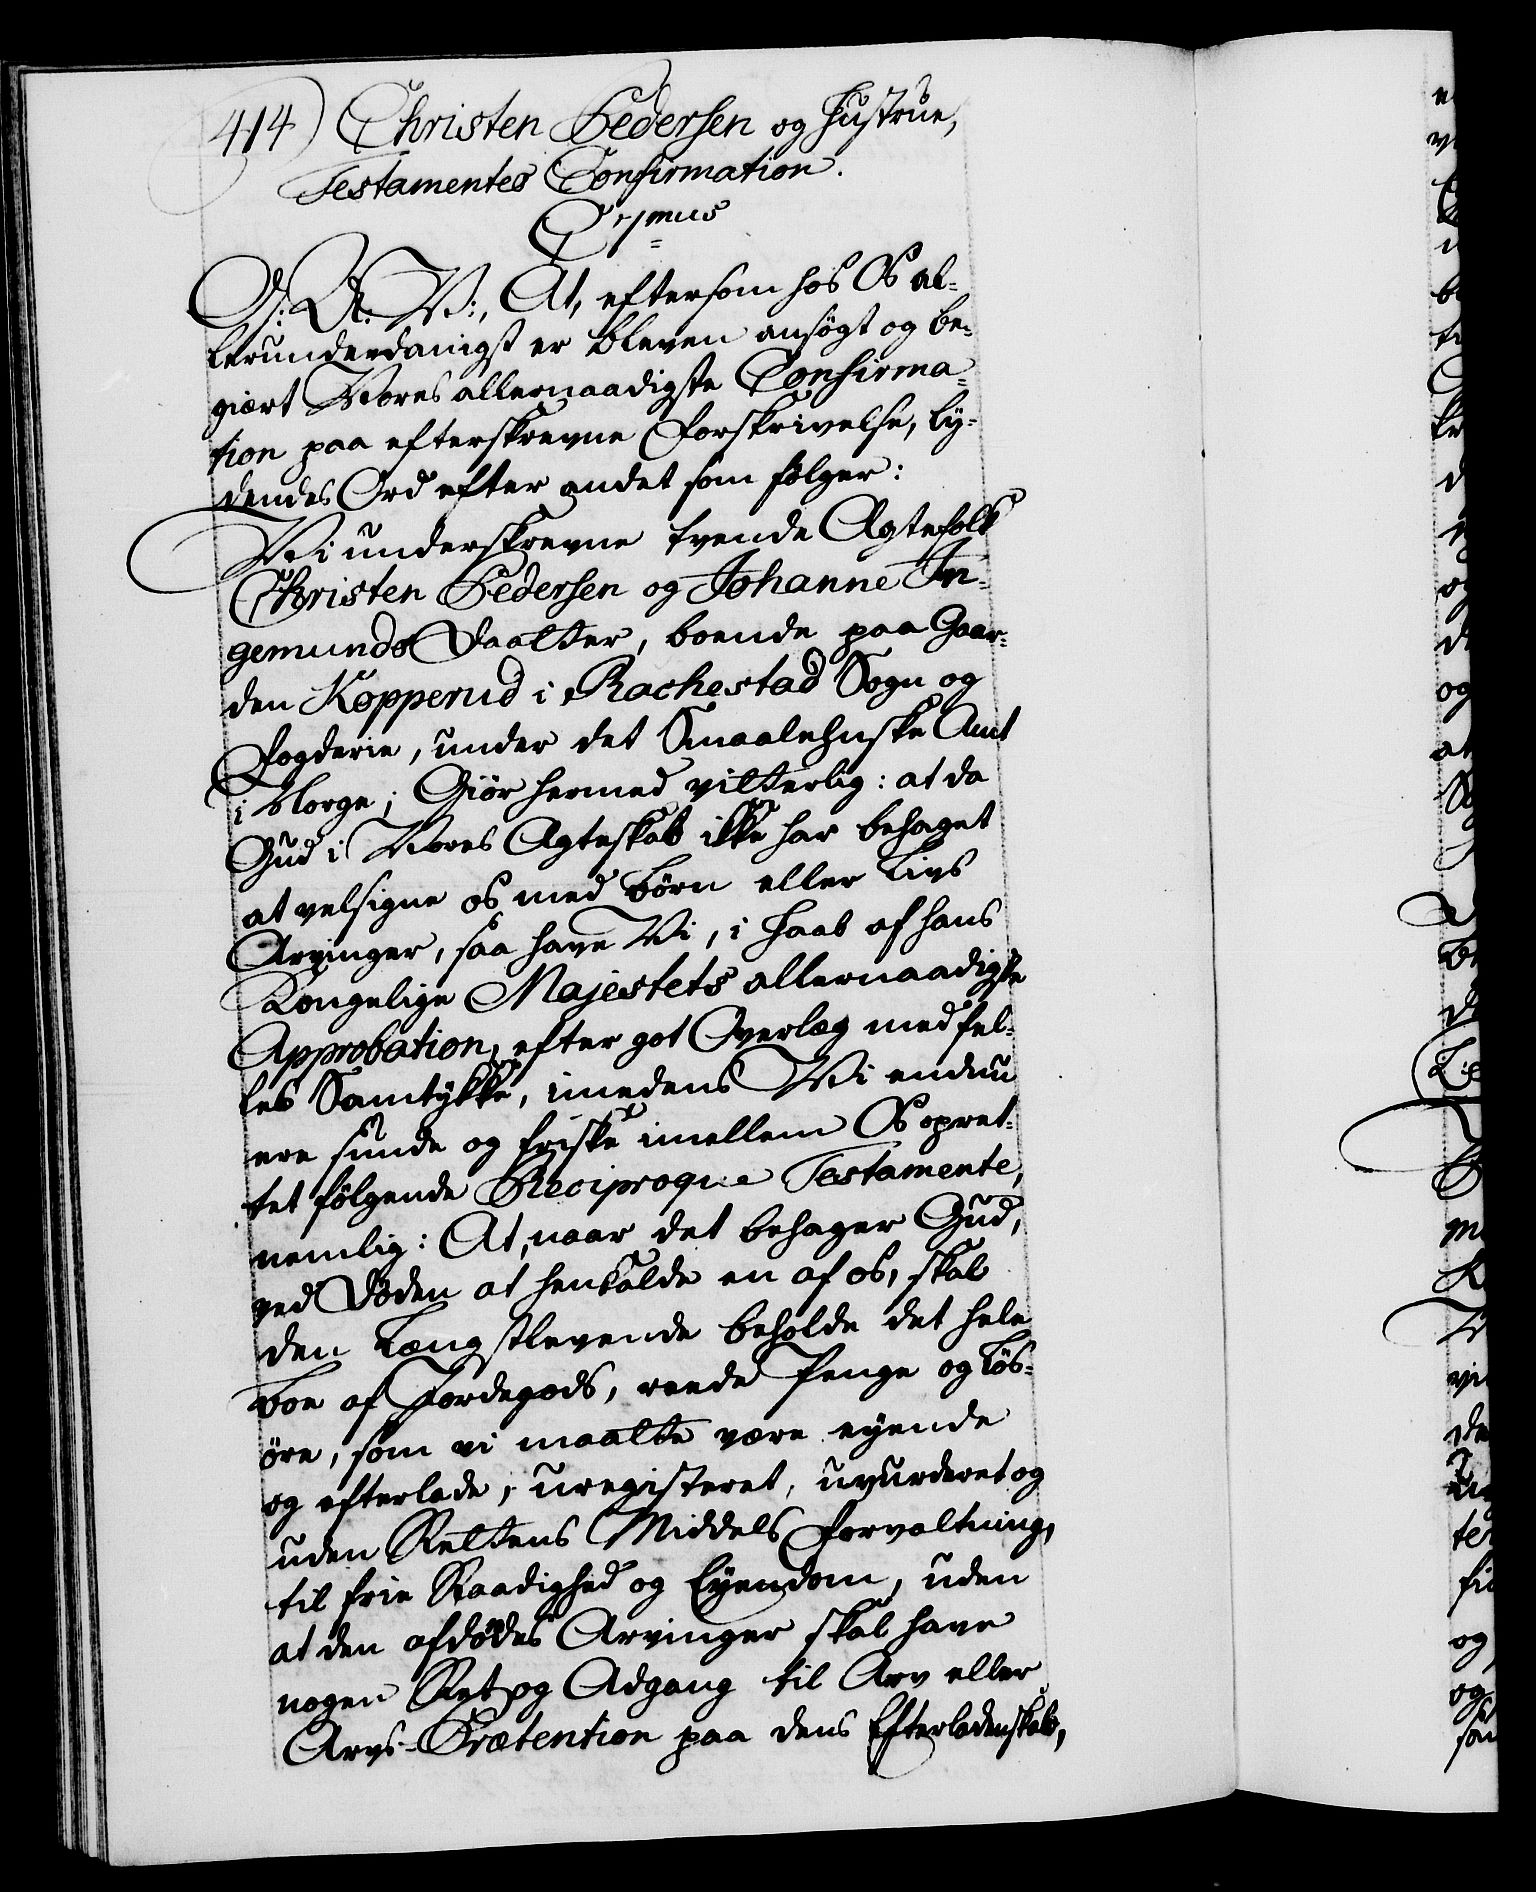 414) Christen Pedersen og Hustrue,
Testamentes Confirmation.
C 7mus
G: A: V:, At, eftersom hos Os al-
lerunderdanigst er bleven ansögt og be-
giert Vores allernaadigste Confirma-
tion paa efterskrevne Forskrivelse, ly-
dendes Ord efter andet som følger:
Vi underskrevne tvende Ægtefolk
Christen Pedersen og Johanne In-
gemunds Daatter, boende paa Gaar-
den Kopperud i Rachestad Sogn og
Fogderie, under det Smaalehnske Amt
i Norge; Giör hermed vitterlig: at da
Gud i Vores Ægteskab ikke har behaget
at velsigne os med Börn eller Livs
Arvinger, saa have Vi, i Haab af Hans
Kongelige Majestets allernaadigste
Approbation, efter got Overlæg med fel-
les Samtykke, imedens Vi endnu
ere sunde og friske imellem Os opret-
tet følgende Reciproque Testamente,
nemlig: At, naar det behager Gud,
ved Døden at henkalde en af os, skal
den Længstlevende beholde det hele
Boe af Jordegods, reede Penge og Lös-
öre, som vi maatte være eyende
og efterlade, uregisteret, uvurderet og
uden Rettens Middels Forvaltning,
til frie Raadighed og Eyendom, uden
at den afdödes Arvinger skal have
nogen Ret og Adgang til Arv eller
Arvs-Prætention paa dens Efterladenskab,